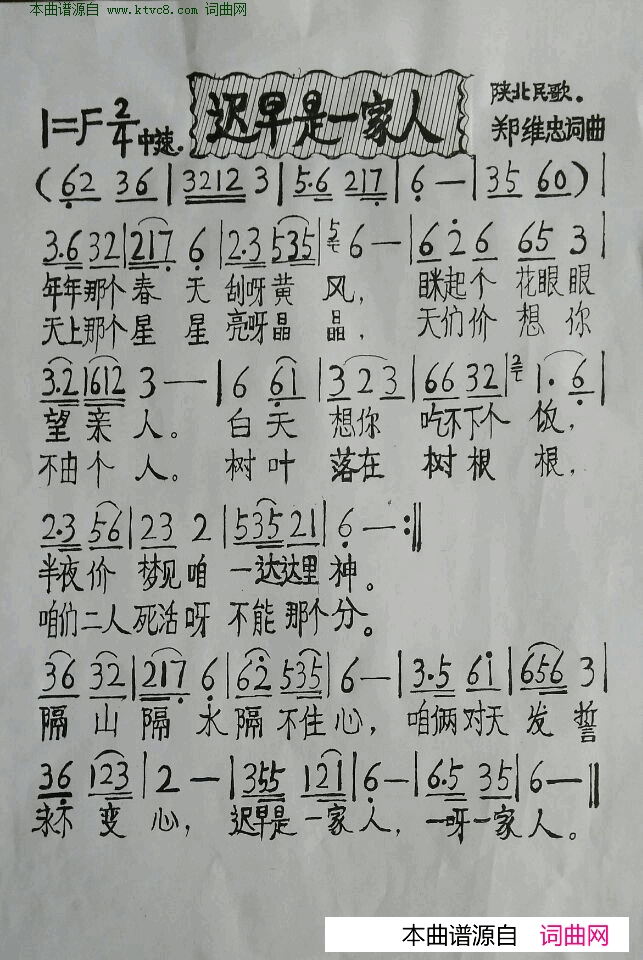 本曲谱源自 www.ktvc8.com 词曲网
迟早是一家人
陕北民歌。
1=F 2/4 中速.
郑维忠词曲
(62 36 | 3212 3 | 5·6 217 | 6 — | 35 60) |
3·6 32 | 217 6 | 2·3 535 | 5 6 — | 6 2 6 65 3 |
年年那个春天刮呀黄风, 眯起个花眼眼
天上那个星星亮呀晶晶, 天们价想你
3·2 1612 3 — | 6 61 | 3 2 3 | 66 32 | 2 1· 6 |
望亲人。白天想你吃不下个饭,
不由个人。树叶落在树根根,
2·3 56 | 23 2 | 535 21 | 6 — :||
半夜价梦见咱一达达里神。
咱们二人死活呀不能那个分。
36 32 | 217 6 | 62 535 | 6 — | 3·5 61 | 656 3 |
隔山隔水隔不住心, 咱俩对天发誓
36 123 | 2 — | 355 121 | 6 — | 6·5 35 | 6 — ||
永不变心, 迟早是一家人, 一呀一家人。
本曲谱源自 词曲网